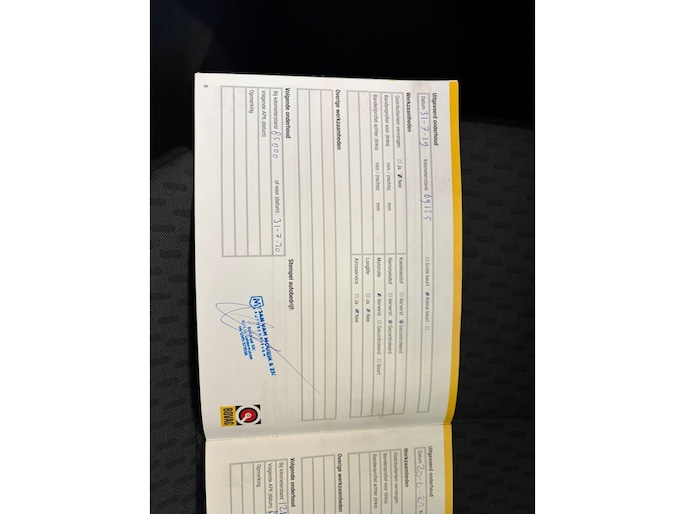 Uitgevoerd onderhoud
Datum 31-7-19 Kilometerstand 69125 ☐ Grote beurt ☒ Kleine beurt ☐
Werkzaamheden
Distributieriem vervangen ☐ Ja ☒ Nee Koelvloeistof ☐ Ververst ☒ Gecontroleerd
Bandenprofiel voor (links) mm / (rechts) mm Remvloeistof ☐ Ververst ☒ Gecontroleerd
Bandenprofiel achter (links) mm / (rechts) mm Motorolie ☒ Ververst ☐ Gecontroleerd ☐ Soort
Longlife ☐ Ja ☒ Nee
Aircoservice ☐ Ja ☒ Nee
Overige werkzaamheden
Volgende onderhoud Stempel autobedrijf:
Bij kilometerstand 85000 of voor (datum) 31-7-20
Volgende APK (datum)
Opmerking
JAN VAN MOURIK & ZN.
BOVAG
8
Uitgevoerd onderhoud
Datum 20-6-
Werkzaamheden
Distributieriem vervangen
Bandenprofiel voor (links)
Bandenprofiel achter (links)
Overige werkzaamheden
Volgende onderhoud
Bij kilometerstand
Volgende APK (datum)
Opmerking